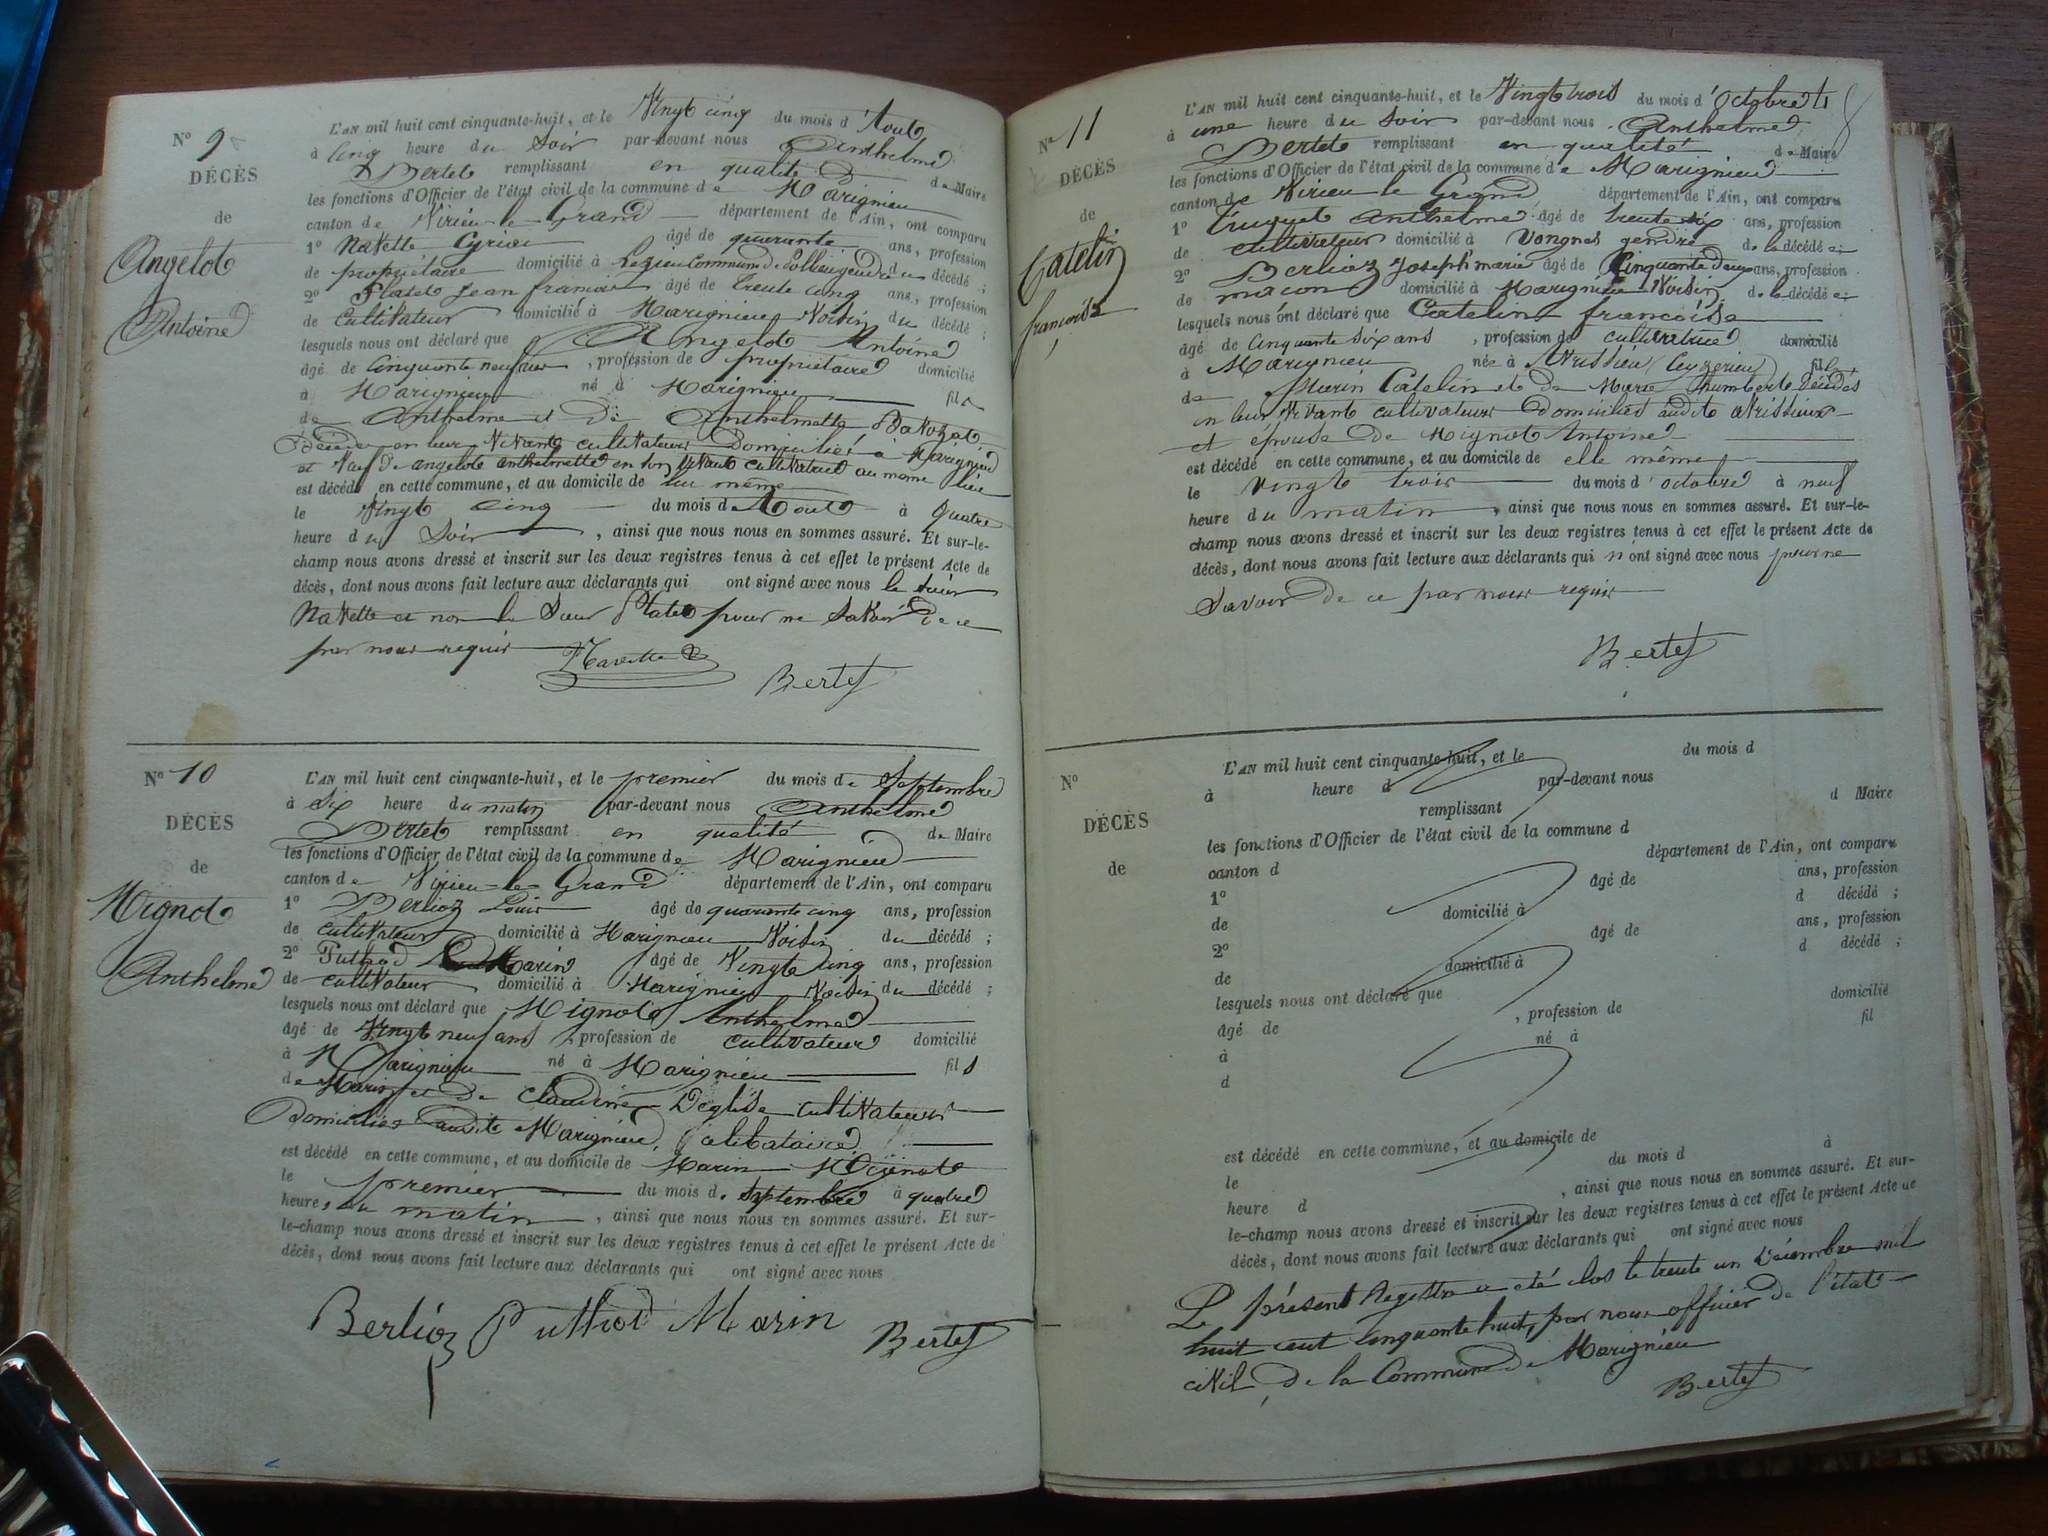 N° 9
DÉCÈS
de
Angelot
Antoine
L'AN mil huit cent cinquante-huit, et le Vingt cinq du mois d'Aout
à Cinq heure du Soir par-devant nous Anthelme
Bertet remplissant en qualité de Maire
les fonctions d'Officier de l'état civil de la commune de Marignieu
canton de Virieu-le-Grand département de l'Ain, ont comparu
1° Navette Cyrien âgé de quarante ans, profession
de propriétaire domicilié à commune de gendre du décédé ;
2° Platet Jean francois âgé de trente cinq ans, profession
de Cultivateur domicilié à Marignieu Voisin du décédé ;
lesquels nous ont déclaré que Angelot Antoine
âgé de Cinquante neuf ans, profession de propriétaire domicilié
à Marignieu né à Marignieu fils
de Anthelme et de Anthelmette
Décédés en leur Vivant cultivateurs Domiciliés à Marignieu
et Veuf de angelot anthelmette en son Vivant cultivatrice au même lieu
est décédé en cette commune, et au domicile de lui même
le Vingt Cinq du mois de Aout à quatre
heure du Soir, ainsi que nous nous en sommes assuré. Et sur-le-
champ nous avons dressé et inscrit sur les deux registres tenus à cet effet le présent Acte de
décès, dont nous avons fait lecture aux déclarants qui ont signé avec nous le Sieur
Navette et non le Sieur Platet pour ne Savoir de ce
par nous requis
Navette
Bertet
N° 10
DÉCÈS
de
Mignot
Anthelme
L'AN mil huit cent cinquante-huit, et le premier du mois de Septembre
à Six heure du matin par-devant nous Anthelme
Bertet remplissant en qualité de Maire
les fonctions d'Officier de l'état civil de la commune de Marignieu
canton de Virieu-le-Grand département de l'Ain, ont comparu
1° Berlioz Louis âgé de quarante cinq ans, profession
de cultivateur domicilié à Marignieu Voisin du décédé ;
2° Puthod Marin âgé de Vingt cinq ans, profession
de cultivateur domicilié à Marignieu Voisin du décédé ;
lesquels nous ont déclaré que Mignot Anthelme
âgé de Vingt neuf ans, profession de cultivateur domicilié
à Marignieu né à Marignieu fils
de Marin et de Claudine Déglise cultivateurs
Domiciliés audit Marignieu, Célibataire
est décédé en cette commune, et au domicile de Marin Mignot
le premier du mois de Septembre à quatre
heures du matin, ainsi que nous nous en sommes assuré. Et sur-
le-champ nous avons dressé et inscrit sur les deux registres tenus à cet effet le présent Acte de
décès, dont nous avons fait lecture aux déclarants qui ont signé avec nous
Berlioz Puthod Marin
Bertet
N° 11
DÉCÈS
de
Catelin
françoise
L'AN mil huit cent cinquante-huit, et le Vingt trois du mois d'Octobre
à une heure du Soir par-devant nous Anthelme
Bertet remplissant en qualité de Maire
les fonctions d'Officier de l'état civil de la commune de Marignieu
canton de Virieu le Grand département de l'Ain, ont comparu
1° Truquet Anthelme âgé de trente six ans, profession
de cultivateur domicilié à Vongnes gendre de la décédée ;
2° Berlioz Joseph marie âgé de Cinquante deux ans, profession
de macon domicilié à Marignieu Voisin de la décédée ;
lesquels nous ont déclaré que Catelin francoise
âgé de Cinquante six ans, profession de cultivatrice domicilié
à Marignieu née à Avrissieu (Ceyzerieu) fille
de Marin Catelin et de Marie humbert Décédés
en leur Vivant cultivateurs Domiciliés audit Avrissieux
et épouse de Mignot Antoine
est décédé en cette commune, et au domicile de elle même
le vingt trois du mois d'octobre à neuf
heure du matin, ainsi que nous nous en sommes assuré. Et sur-le-
champ nous avons dressé et inscrit sur les deux registres tenus à cet effet le présent Acte de
décès, dont nous avons fait lecture aux déclarants qui n'ont signé avec nous pour ne
Savoir de ce par nous requis
Bertet
N°
DÉCÈS
de
L'AN mil huit cent cinquante-huit, et le du mois d
à heure d par-devant nous
remplissant d Maire
les fonctions d'Officier de l'état civil de la commune d
canton d département de l'Ain, ont comparu
1° âgé de ans, profession
de domicilié à d décédé ;
2° âgé de ans, profession
de domicilié à d décédé ;
lesquels nous ont déclaré que
âgé de , profession de domicilié
à né à fil
d
est décédé en cette commune, et au domicile de
le du mois d à
heure d , ainsi que nous nous en sommes assuré. Et sur-
le-champ nous avons dressé et inscrit sur les deux registres tenus à cet effet le présent Acte de
décès, dont nous avons fait lecture aux déclarants qui ont signé avec nous
Le présent Registre a été clos le trente un Décembre mil
huit cent Cinquante huit, par nous officier de l'état
civil de la Commune de Marignieu
Bertet